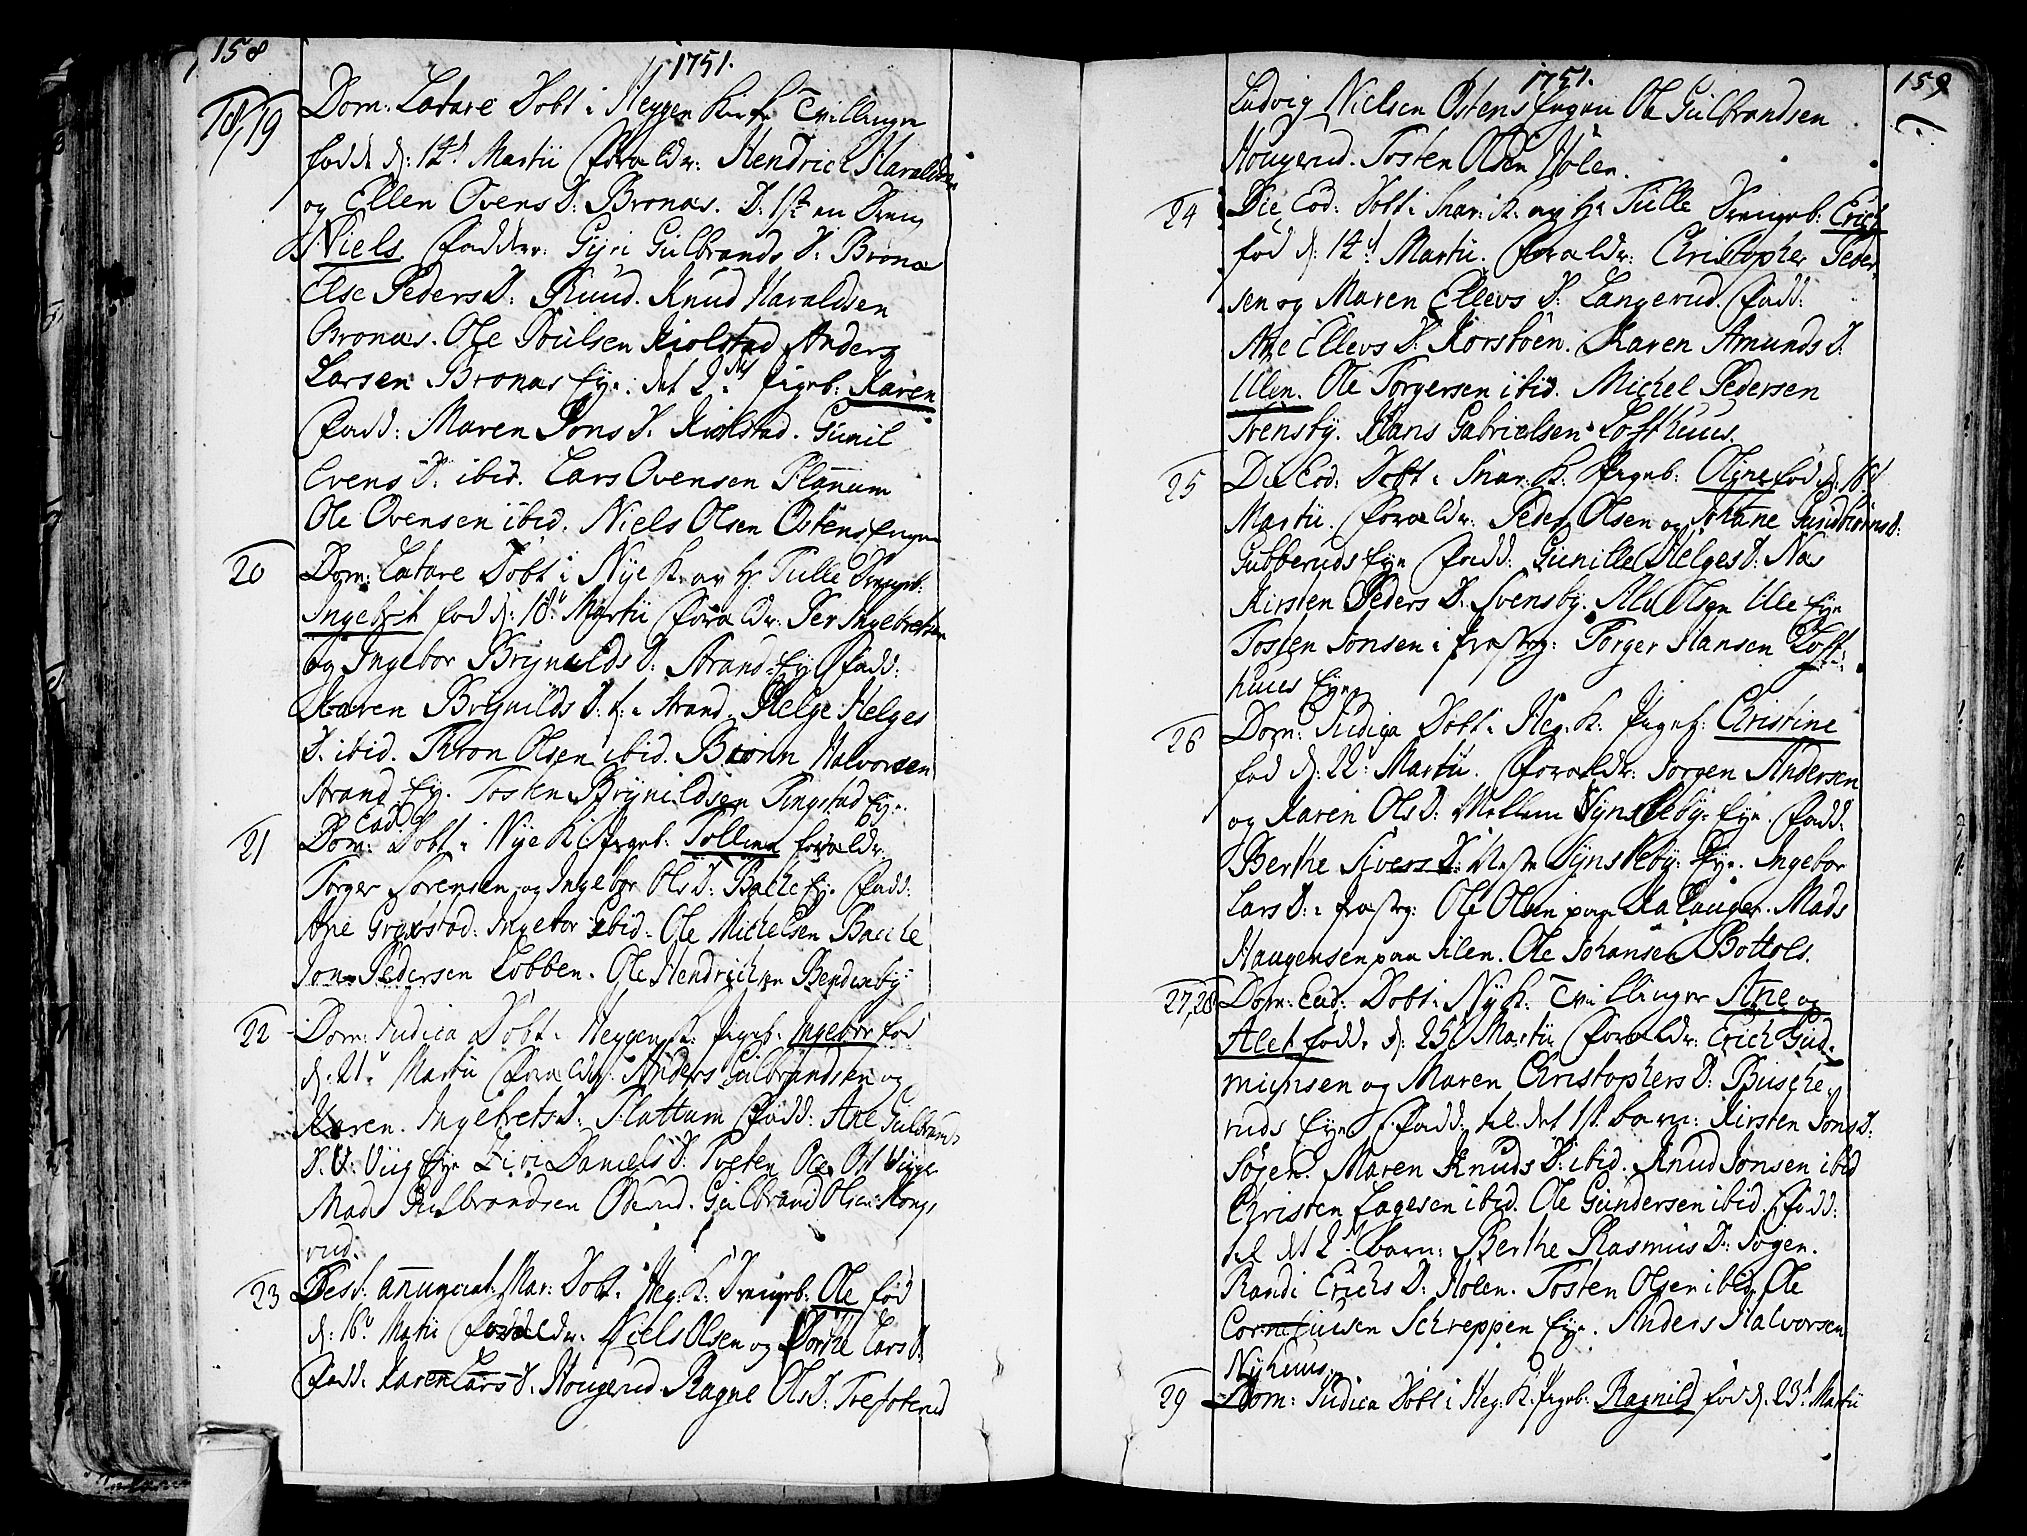 158
1751.
18, 19 Dom: Lætare Døbt i Heggen Kirke Tvillinger
fødde d: 14d Martii Forældr: Hendrich Haraldsen
og Ellen Ovens D: Bronæs. D: 1ste en Dreng
Niels Faddere: Gyri Gulbrands D: Bronæ
Else Peders D: Ruud. Knud Haraldsen
Bronæs. Ole Poulsen Kiolstad Anders
Larsen Bronæs Eye. det 2det Pigeb: Karen
Fadd: Maren Jons D. Kiolstad. Gunil
Evens D: ibid. Lars Ovensen Plannum
Ole Ovensen ibid. Niels Olsen Østens Engen
20 Dom: Lætare Døbt i Nye K. av Hr Tulle Drengeb:
Ingebret fød d: 18. Martii Forældr: Per Ingebretsen
og Ingebor Brynilds D: Strand Eye Fadd:
Karen Brynilds D: Strand. Helge Helges
D. ibid. Thron Olsen ibid. Biörn Halvorsen
Strand Ey. Tosten Brynildsen Ringstad Eye.
21 Dom: Eod Døbt i Nye K: Pigeb: Tollina Forældr.
Torger Sorensen og Ingebor Ols D: Bache Ey. Fadd:
Ane Graxstad. Ingebor ibid. Ole Michelsen Bache
Jon Pedersen Lobben. Ole Hendrichsen Bendixby
22 Dom: Judica Døbt i Heggen K: Pigeb: Ingebor fød
d. 21. Martii Forældr: Anders Gulbrandsen og
Karen Ingebrets D: Plattum Fadd: Ane Gulbrands
D. Viig Eye Siri Daniels D. Tveten Ole
Mads Gulbrandsen Oderud. Gulbrand Olsen Houg-
rud.
23 Fest: annunciat: Mar: Døbt i Heg: K: Drengeb: Ole fød
d: 16. Martii Forældr. Niels Olsen og Dorthe Lars D:
Fadd: Karen Lars D. Hougerud. Ragne Ols D:
1751.
159
Ludvig Nielsen Østens Engen Ole Gulbrandsen
Hougerud. Tosten Olsen Holen.
24 Die Eod: Døbt i Snar: K. av Hr Tulle Drengeb: Erich
fød d: 14d Martii. Forældr: Christopher Peder-
sen og Maren Ellevs D: Langerud. Fadd:
Ane Ellevs D. Korstoen. Karen Amunds D.
Ulen. Ole Torgersen ibid. Michel Pedersen
Svensby. Hans Gabrielsen Lofthuus.
25 Die Eod: Døbt i Snar: K: Pigeb: Oline fød d: 18d
Martii. Forældr: Peder Olsen og Johane Gundbiørns D:
Gubberuds Eye Fadd: Gunille Helges D: Næs
Kirsten Peders D. Svensby. Ole Olsen Ule Eye
Tosten Jonsen i Torger Hansen Loft-
huus Eye.
26 Dom: Judica Døbt i Heg. K: Pigeb: Christine
fød d: 22: Martii. Forældr: Jorgen Andersen
og Karen Ols D: Mellem Synskeby: Eye. Fadd:
Berthe Sivers D: Synskeby: Eye. Ingebor
Lars D: Ole Olsen paa Kalauger. Mads
Haugensen paa Ole Johansen Bottols.
27, 28 Dom: Eod: Døbt i Ny K. Tvillinger Ane og
Alet fødde d: 25d Martii Forældr: Erich Gud-
mundsen og Maren Christophers D: Busche-
ruds Eye Fadd: til det 1ste barn: Kirsten Jons D:
Søgen. Maren Knuds D: ibid. Knud Jonsen ibid
Christen Lagesen ibid. Ole Gundersen ibid. Fadd:
til det 2det barn: Berthe Rasmus D: Søgen.
Randi Erichs D: Holen. Tosten Olsen ibid. Ole
Corneliusen Schreppen Eye. Anders Halvorsen
Nyhuus.
29 Dom: Judica Døbt i Heg: K. Pigeb: Ragnild fød d. 23d Martii